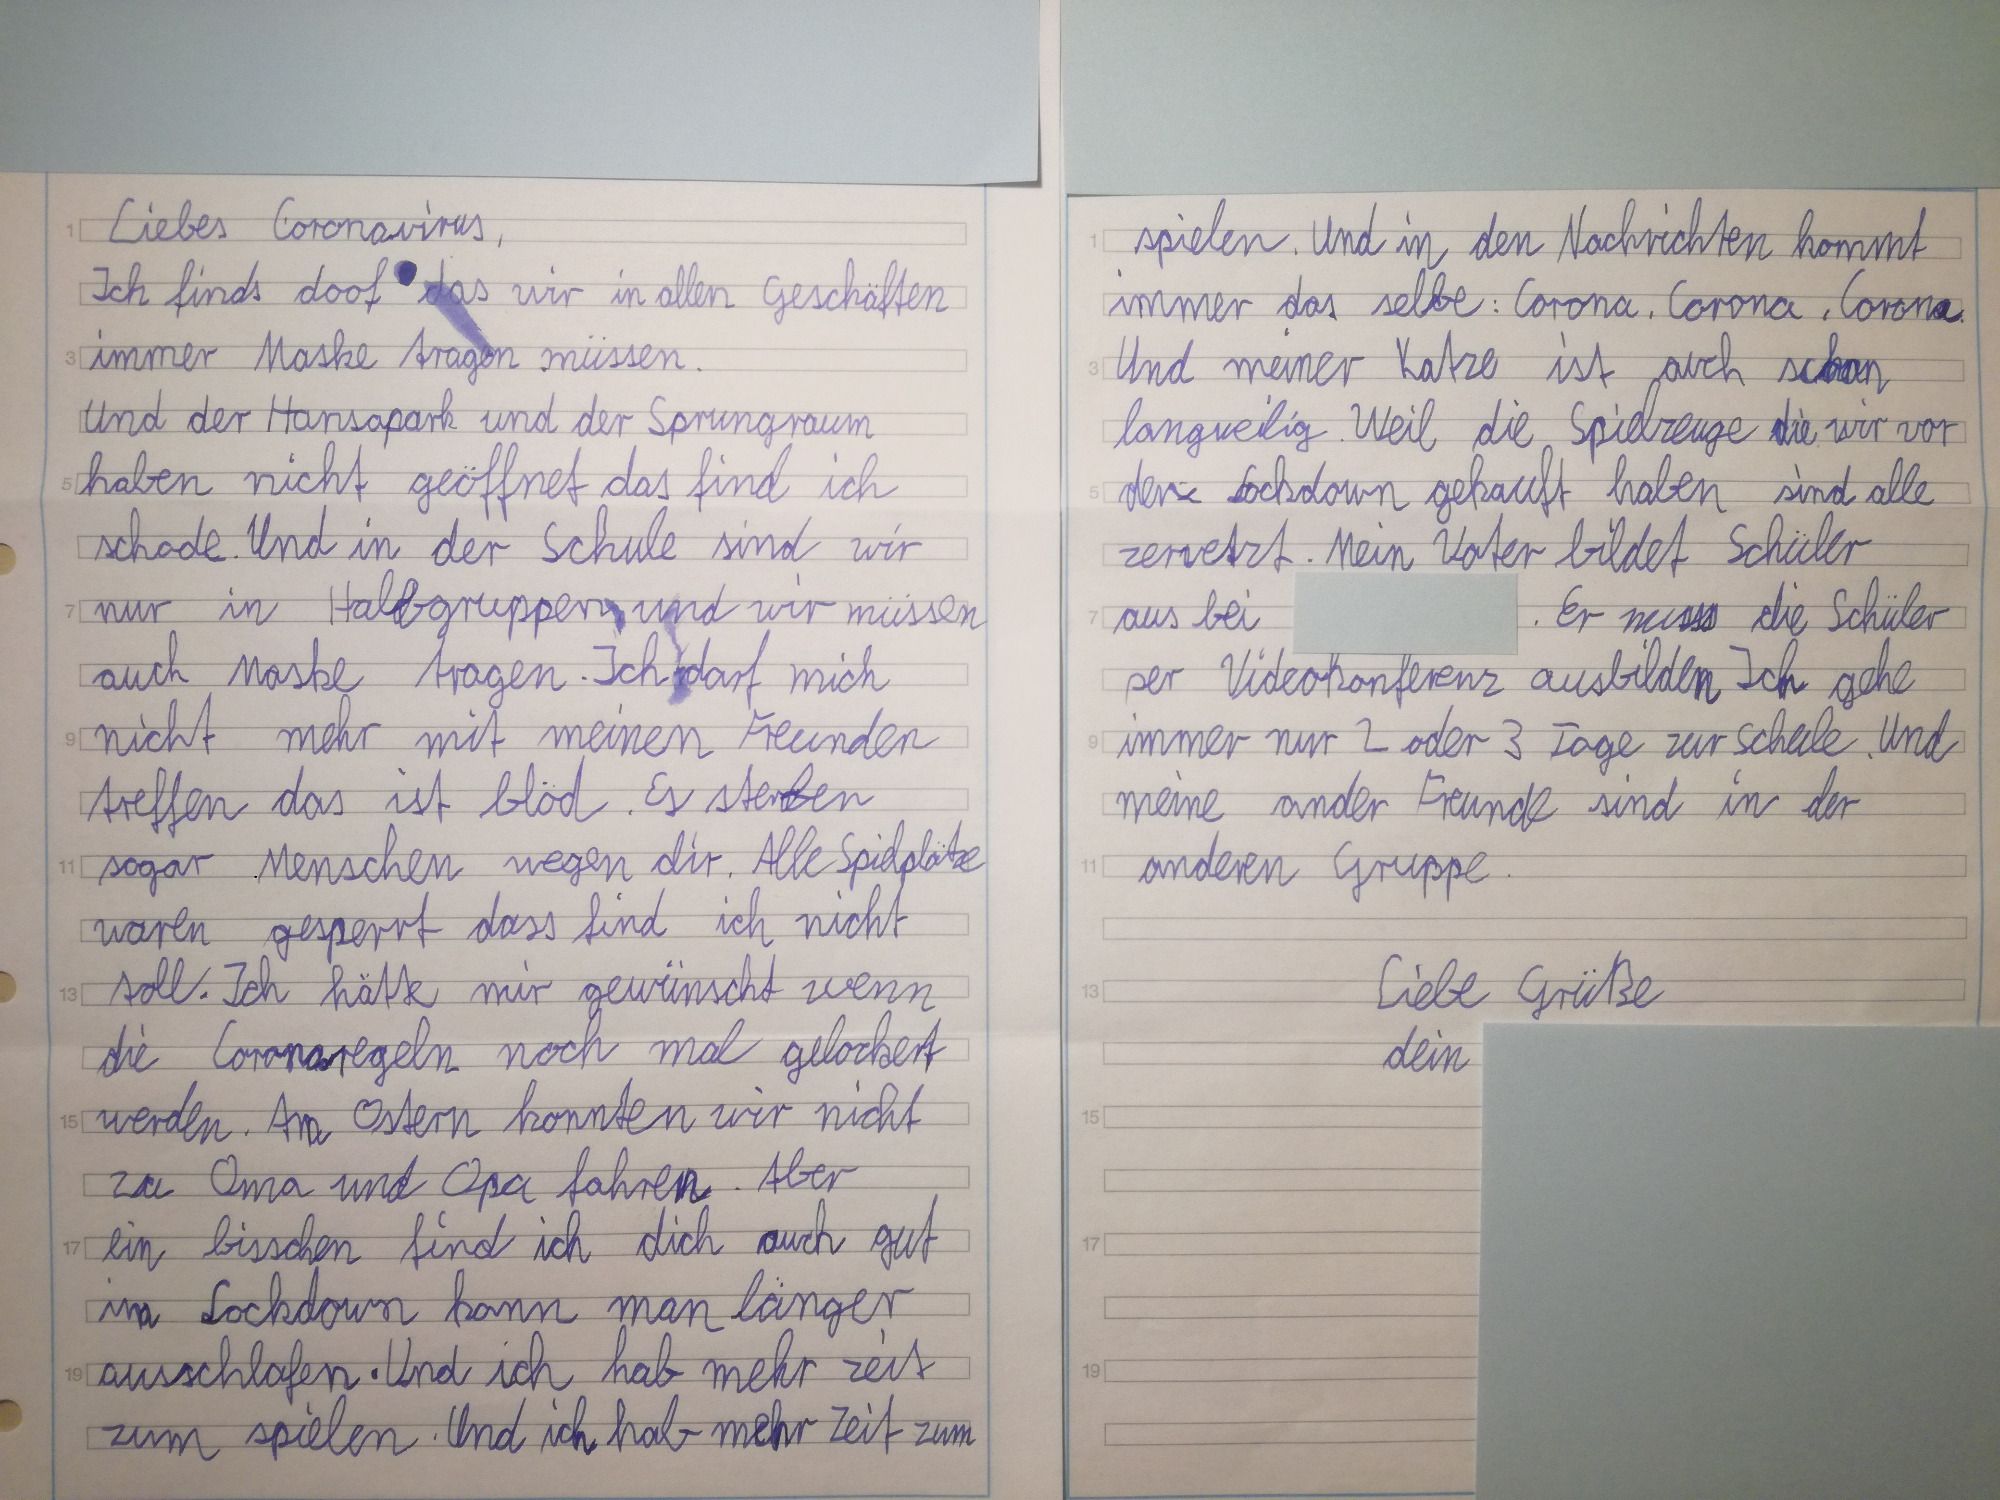 Liebes Coronavirus,
Ich finds doof das wir in allen Geschäften
immer Maske tragen müssen.
Und der Hansapark und der Sprungraum
haben nicht geöffnet das find ich
schade. Und in der Schule sind wir
nur in Halbgruppen und wir müssen
auch Maske tragen. Ich darf mich
nicht mehr mit meinen Freunden
treffen das ist blöd. Es sterben
sogar Menschen wegen dir. Alle Spielplätze
waren gesperrt dass find ich nicht
toll. Ich hätte mir gewünscht wenn
die Coronaregeln noch mal gelockert
werden. An Ostern konnten wir nicht
zu Oma und Opa fahren. Aber
ein bisschen find ich dich auch gut
im Lockdown kann man länger
ausschlafen. Und ich hab mehr zeit
zum spielen. Und ich hab mehr Zeit zum
spielen. Und in den Nachrichten kommt
immer das selbe: Corona, Corona, Corona.
Und meiner Katze ist auch schon
langweilig. Weil die Spielzeuge die wir vor
dem Lockdown gekauft haben sind alle
zerfetzt. Mein Vater bildet Schüler
aus bei . Er muss die Schüler
per Videokonferenz ausbilden Ich gehe
immer nur 2 oder 3 Tage zur Schule. Und
meine ander Freunde sind in der
anderen Gruppe.
Liebe Grüße
dein
1
3
5
7
9
11
13
15
17
19
1
3
5
7
9
11
13
15
17
19